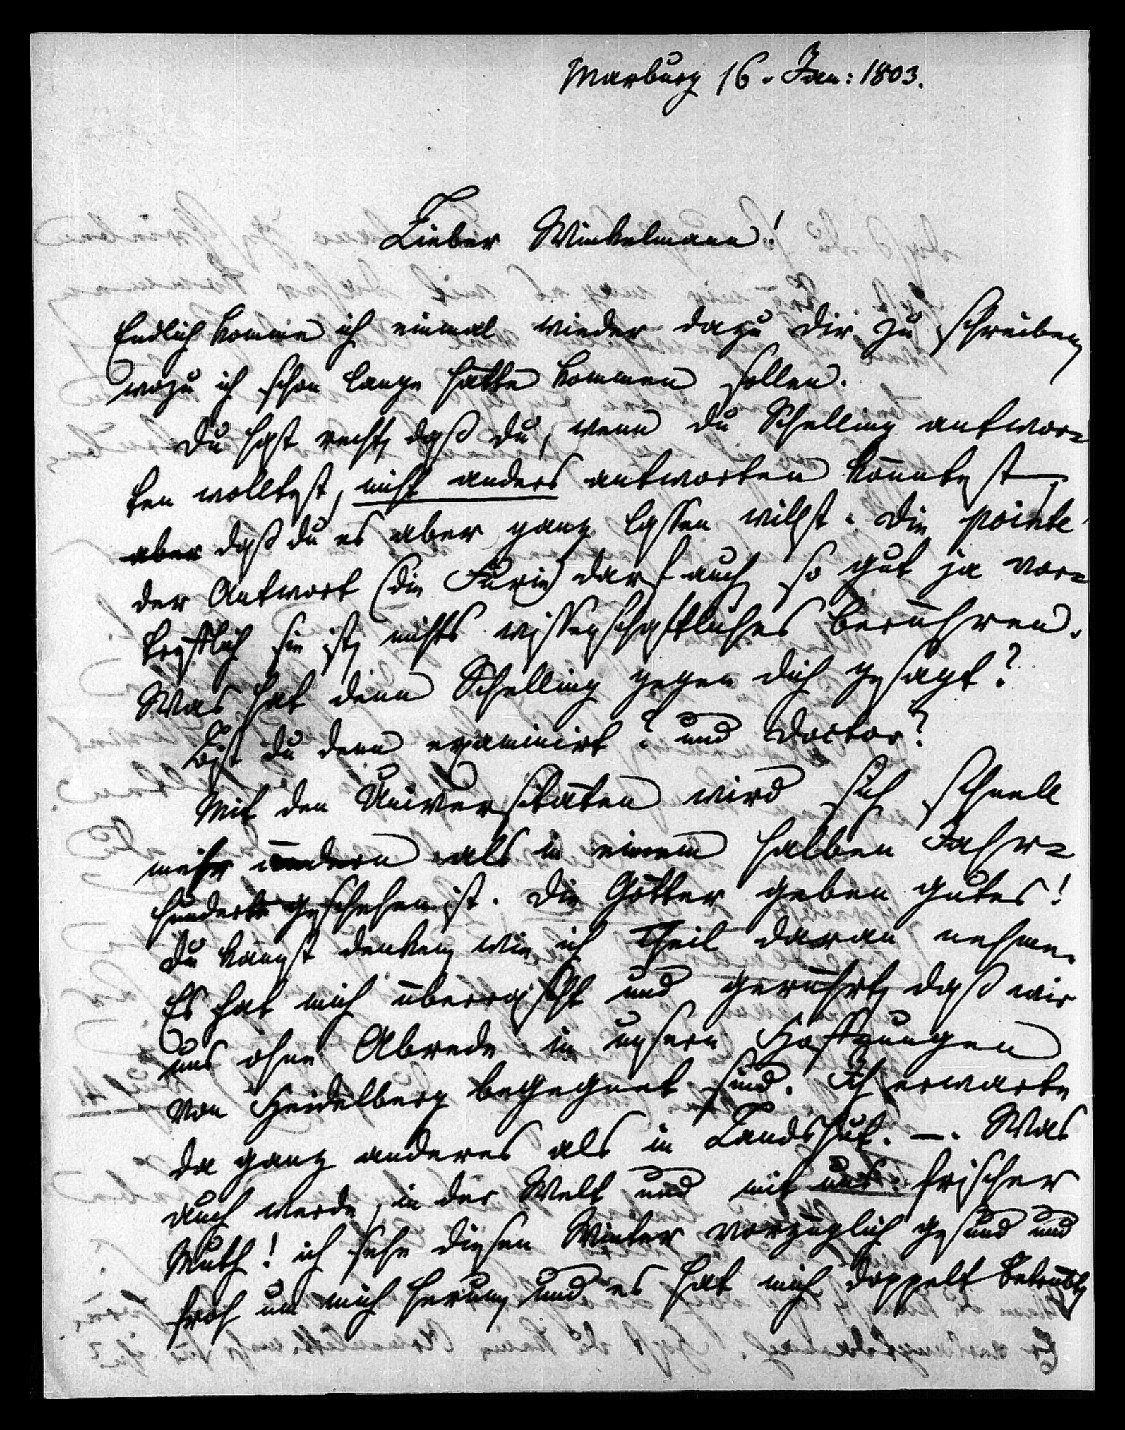 Marburg 16. Jan: 1803.
Lieber Winkelmann!
Endlich komme ich einmal wieder dazu dir zu schreiben,
wozu ich schon lange hätte kommen sollen.
Du hast recht, daß du, wenn du Schelling antwor=
ten wolltest, nicht anders antworten konntest,
aber daß du es aber ganz lassen willst. Die pointe
der Antwort (die Furie) darf auch, so gut ja vor=
treflich sie ist, nichts wissenschaftliches berühren.
Was hat denn Schelling gegen dich gesagt?
Bist du denn examinirt? und Doctor?
Mit den Universitäten wird sich schnell
mehr ändern als in einem halben Jahr=
hundert geschehen ist. Die Götter geben gutes!
Du kannst denken, wie ich Theil daran nehme.
Es hat mich überrascht und gerührt, daß wir
uns ohne Abrede in unsern Hoffnungen
von Heidelberg begegnet sind. Ich erwarte
da ganz anderes als in Landshut. —. Was
auch werde, in der Welt und mit uns: frischer
Muth! ich sehe diesen Winter vorzüglich gesund und
froh um mich herum, und es hat mich doppelt betrübt,